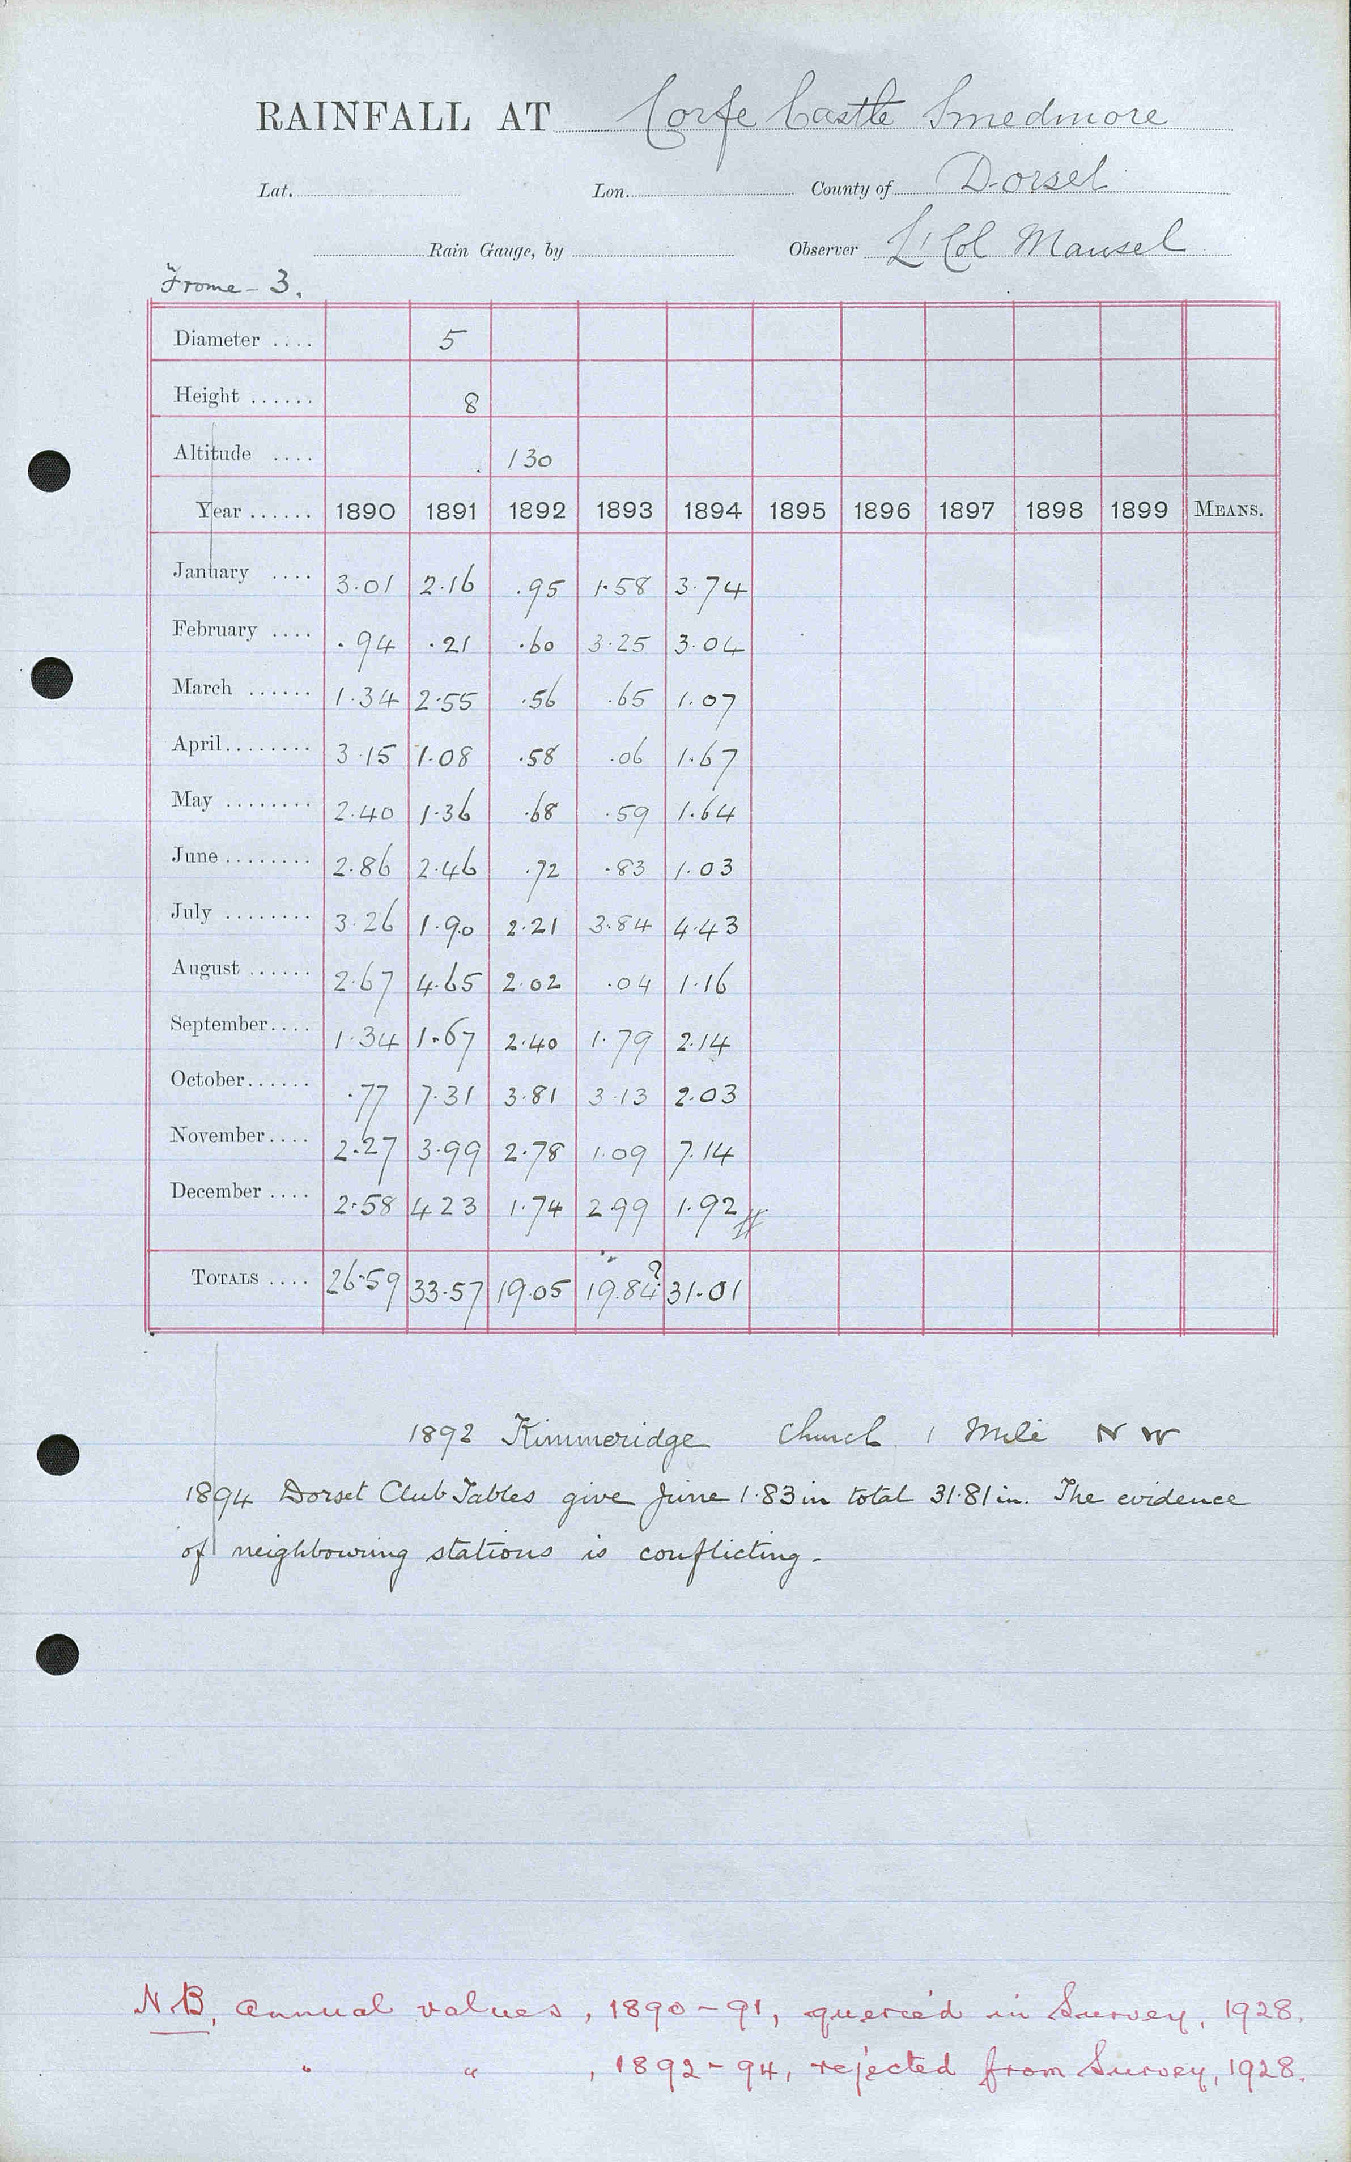 RAINFALL AT Corfe Castle Smedmore
Lat. Lon. County of Dorset
Rain Gauge, by Observer Lt Col Mansel
Frome - 3.
Diameter .... 5
Height ...... 8
Altitude .... 130
Year ...... 1890 1891 1892 1893 1894 1895 1896 1897 1898 1899 MEANS.
January .... 3.01 2.16 .95 1.58 3.74
February .... .94 .21 .60 3.25 3.04
March ...... 1.34 2.55 .56 .65 1.07
April ........ 3.15 1.08 .58 .06 1.67
May ........ 2.40 1.36 .68 .59 1.64
June ........ 2.86 2.46 .72 .83 1.03
July ........ 3.26 1.90 2.21 3.84 4.43
August ...... 2.67 4.65 2.02 .04 1.16
September .... 1.34 1.67 2.40 1.79 2.14
October ...... .77 7.31 3.81 3.13 2.03
November .... 2.27 3.99 2.78 1.09 7.14
December .... 2.58 4.23 1.74 2.99 1.92
TOTALS .... 26.59 33.57 19.05 19.84? 31.01
1892 Kimmeridge Church 1 Mile N W
1894 Dorset Club Tables give June 1.83 in total 31.81 in. The evidence
of neighbouring stations is conflicting.
N.B. annual values, 1890-91, queried in Survey, 1928.
" " , 1892-94, rejected from Survey, 1928.